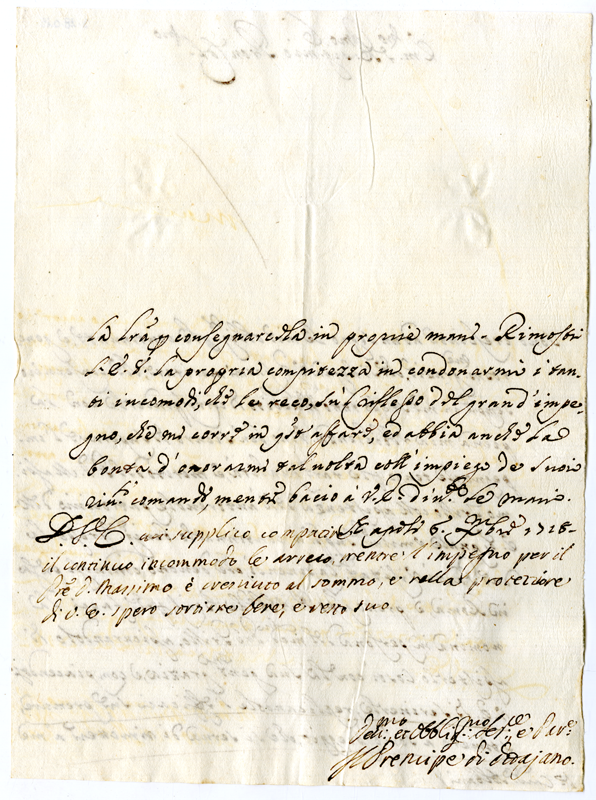 la lrã p consegnarcela in proprie mani. Rimostri
V. E. la propria compitezza in condonarmi i tan-
ti incomodi, che le reco, sù l'riflesso del grand'impe-
gno, che mi corre in q̃sto affare, ed abbia anche la
bontà d'onorarmi tal volta coll'impiego de suoi
riv.ti comandi, mentre bacio à V. E. div.te le mani.
Napoli 6. 9mbre 1718.
supplico
il continuo incommodo le arreco, mentre l'impegno per il
Pre D. Massimo è cresciuto al sommo, e nella protezione
di V. E. spero sortirne bene, e resto suo
Il Prencipe di Ottajano.